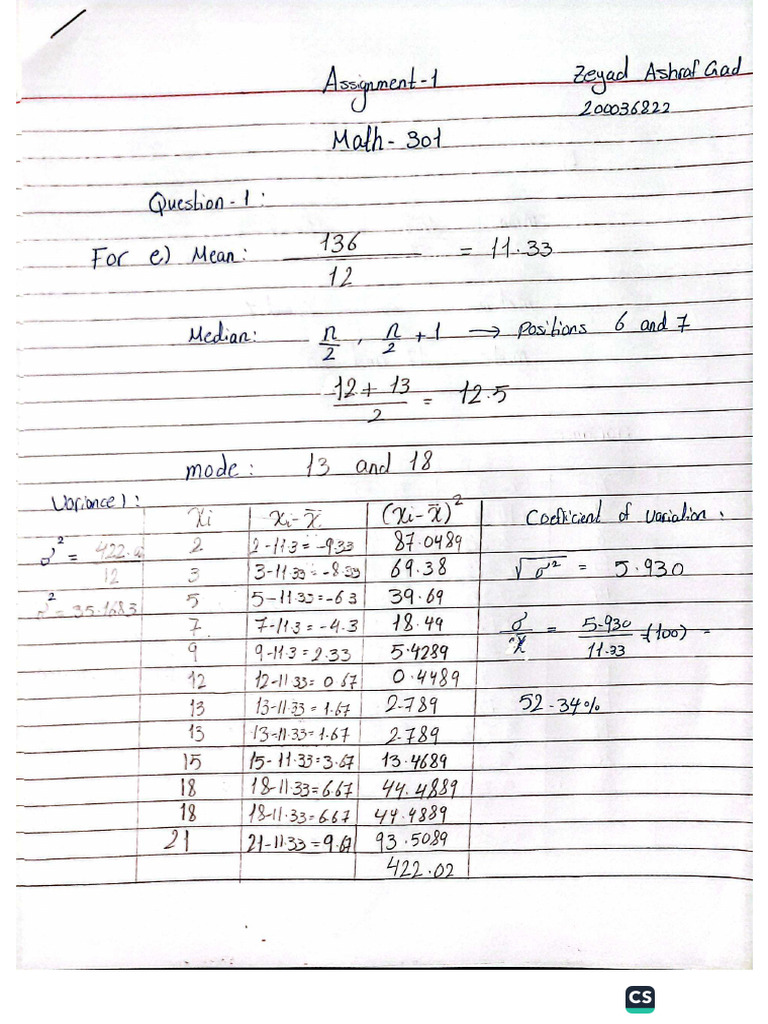 Assignment-1
Zeyad Ashraf Gad
200036822
Math-301
Question-1:
For e) Mean: 136 / 12 = 11.33
Median: n/2, n/2 + 1 → Positions 6 and 7
12 + 13 / 2 = 12.5
mode: 13 and 18
Variance 1:
σ² = 422.0 / 12
σ² = 35.1683
xi | xi - x̄ | (xi - x̄)²
2 | 2-11.3 = -9.33 | 87.0489
3 | 3-11.33 = -8.33 | 69.38
5 | 5-11.33 = -6.3 | 39.69
7 | 7-11.3 = -4.3 | 18.49
9 | 9-11.3 = 2.33 | 5.4289
12 | 12-11.33 = 0.67 | 0.4489
13 | 13-11.33 = 1.67 | 2.789
13 | 13-11.33 = 1.67 | 2.789
15 | 15-11.33 = 3.67 | 13.4689
18 | 18-11.33 = 6.67 | 44.4889
18 | 18-11.33 = 6.67 | 44.4889
21 | 21-11.33 = 9.67 | 93.5089
422.02
Coefficient of variation:
√σ² = 5.930
σ / x̄ = 5.930 / 11.33 (100) =
52.34%
CS